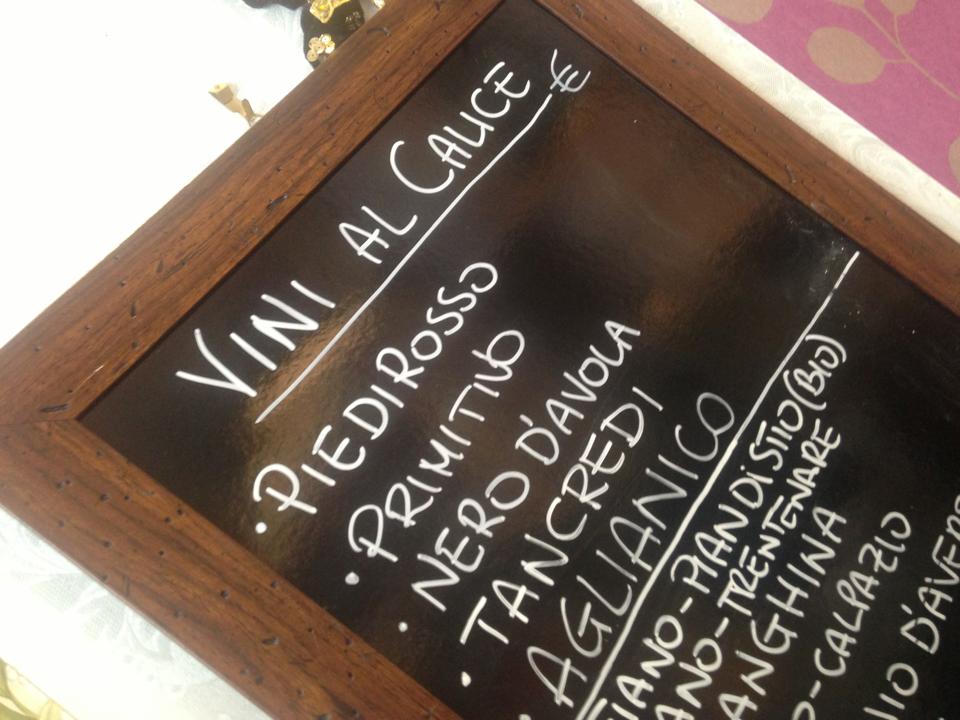 VINI AL CALICE €
• PIEDIROSSO
• PRIMITIVO
• NERO D'AVOLA
• TANCREDI
• AGLIANICO
IANO-PIANDISTIO (BIO)
ANO-TRENTENARE
ANGHINA
O-CALPAZIO